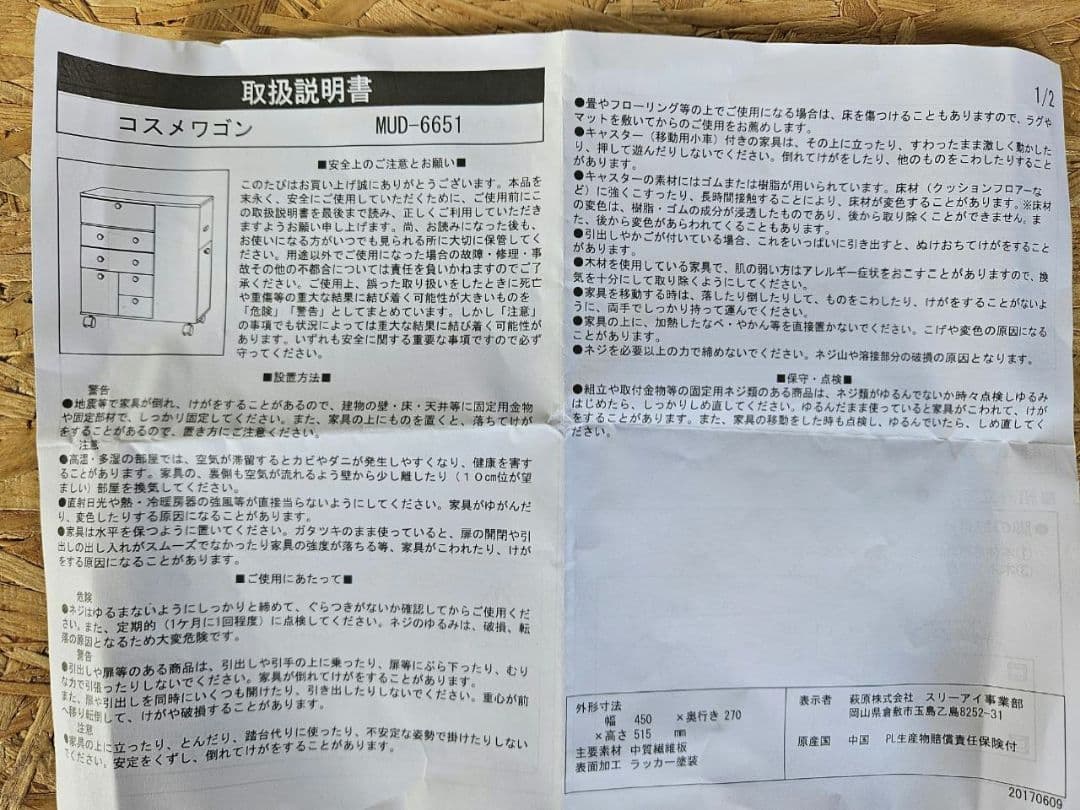 取扱説明書
コスメワゴン MUD-6651
■安全上のご注意とお願い■
このたびはお買い上げ誠にありがとうございます。本品を
末永く、安全にご使用していただくために、ご使用前にこ
の取扱説明書を最後まで読み、正しくご利用していただき
ますようお願い申し上げます。尚、お読みになった後も、
お使いになる方がいつでも見られる所に大切に保管してく
ださい。用途以外でご使用になった場合の故障・修理・事
故その他の不都合については責任を負いかねますのでご了
承ください。ご使用上、誤った取り扱いをしたときに死亡
や重傷等の重大な結果に結び着く可能性が大きいものを
「危険」「警告」としてまとめています。しかし「注意」
の事項でも状況によっては重大な結果に結び着く可能性が
あります。いずれも安全に関する重要な事項ですので必ず
守ってください。
■設置方法■
警告
●地震等で家具が倒れ、けがをすることがあるので、建物の壁・床・天井等に固定用金物
や固定部材で、しっかり固定してください。また、家具の上にものを直くと、落ちてけが
をすることがあるので、置き方にご注意ください。
注意
●高湿・多湿の部屋では、空気が滞留するとカビやダニが発生しやすくなり、健康を害す
ることがあります。家具の、裏側も空気が流れるよう壁から少し離したり(10cm位が望
ましい)部屋を換気してください。
●直射日光や熱・冷暖房器の強風等が直接当らないようにしてください。家具がゆがんだ
り、変色したりする原因になることがあります。
●家具は水平を保つように置いてください。ガタツキのまま使っていると、扉の開閉や引
出しの出し入れがスムーズでなかったり家具の強度が落ちる等、家具がこわれたり、けが
をする原因になることがあります。
■ご使用にあたって■
危険
●ネジはゆるまないようにしっかりと締めて、ぐらつきがないか確認してからご使用くだ
さい。また、定期的(1ケ月に1回程度)に点検してください。ネジのゆるみは、破損、転
落の原因となるため大変危険です。
警告
●引出しや扉等のある商品は、引出しや引手の上に乗ったり、扉等にぶら下ったり、むり
な力で引張ったりしないでください。家具が倒れてけがをすることがあります。
また、扉や引出しを同時にいくつも開けたり、引き出したりしないでください。重心が前
へ移り転倒して、けがや破損することがあります。
注意
●家具の上に立ったり、とんだり、踏台代りに使ったり、不安定な姿勢で掛けたりしない
でください。安定をくずし、倒れてけがをすることがあります。
1/2
●畳やフローリング等の上でご使用になる場合は、床を傷つけることもありますので、ラグや
マットを敷いてからのご使用をお薦めします。
●キャスター(移動用小車)付きの家具は、その上に立ったり、すわったまま激しく動かした
り、押して遊んだりしないでください。倒れてけがをしたり、他のものをこわしたりすること
があります。
●キャスターの素材にはゴムまたは樹脂が用いられています。床材(クッションフロアーな
ど)に強くこすったり、長時間接触することにより、床材が変色することがあります。※床材
の変色は、樹脂・ゴムの成分が浸透したものであり、後から取り除くことができません。ま
た、後から変色があらわれてくることもあります。
●引出しやかごが付いている場合、これをいっぱいに引き出すと、ぬけおちてけがをすること
があります。
●木材を使用している家具で、肌の弱い方はアレルギー症状をおこすことがありますので、換
気を十分にして取り除くようにしてください。
●家具を移動する時は、落したり倒したりして、ものをこわしたり、けがをすることがないよ
うに、両手でしっかり持って運んでください。
●家具の上に、加熱したなべ・やかん等を直接置かないでください。こげや変色の原因になる
ことがあります。
●ネジを必要以上の力で締めないでください。ネジ山や溶接部分の破損の原因となります。
■保守・点検■
●組立や取付金物等の固定用ネジ類のある商品は、ネジ類がゆるんでないか時々点検しゆるみ
はじめたら、しっかりしめ直してください。ゆるんだまま使っていると家具がこわれて、けが
をすることがあります。また、家具の移動をした時も点検し、ゆるんでいたら、しめ直してく
ださい。
外形寸法
幅 450 ×奥行き 270
×高さ 515 mm
主要素材 中質繊維板
表面加工 ラッカー塗装
表示者 萩原株式会社 スリーアイ事業部
岡山県倉敷市玉島乙島8252-31
原産国 中国 PL生産物賠償責任保険付
20170609